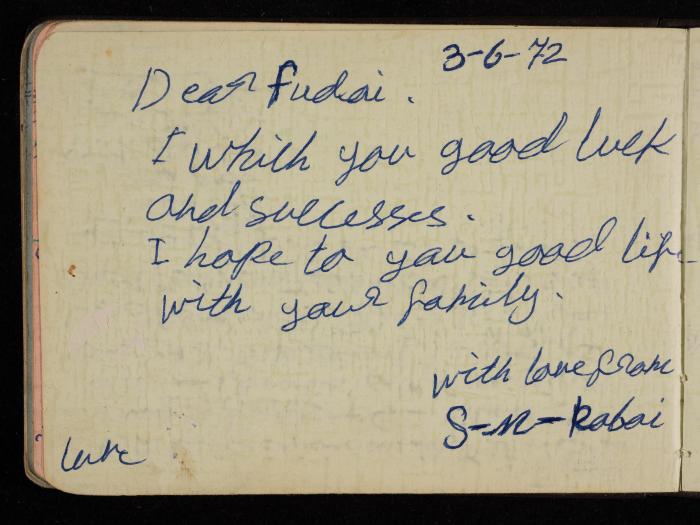 3-6-72
Dear Fudai.
I which you good luck
and successes.
I hope to you good life
with your family.
with love from
S-M-Rabai